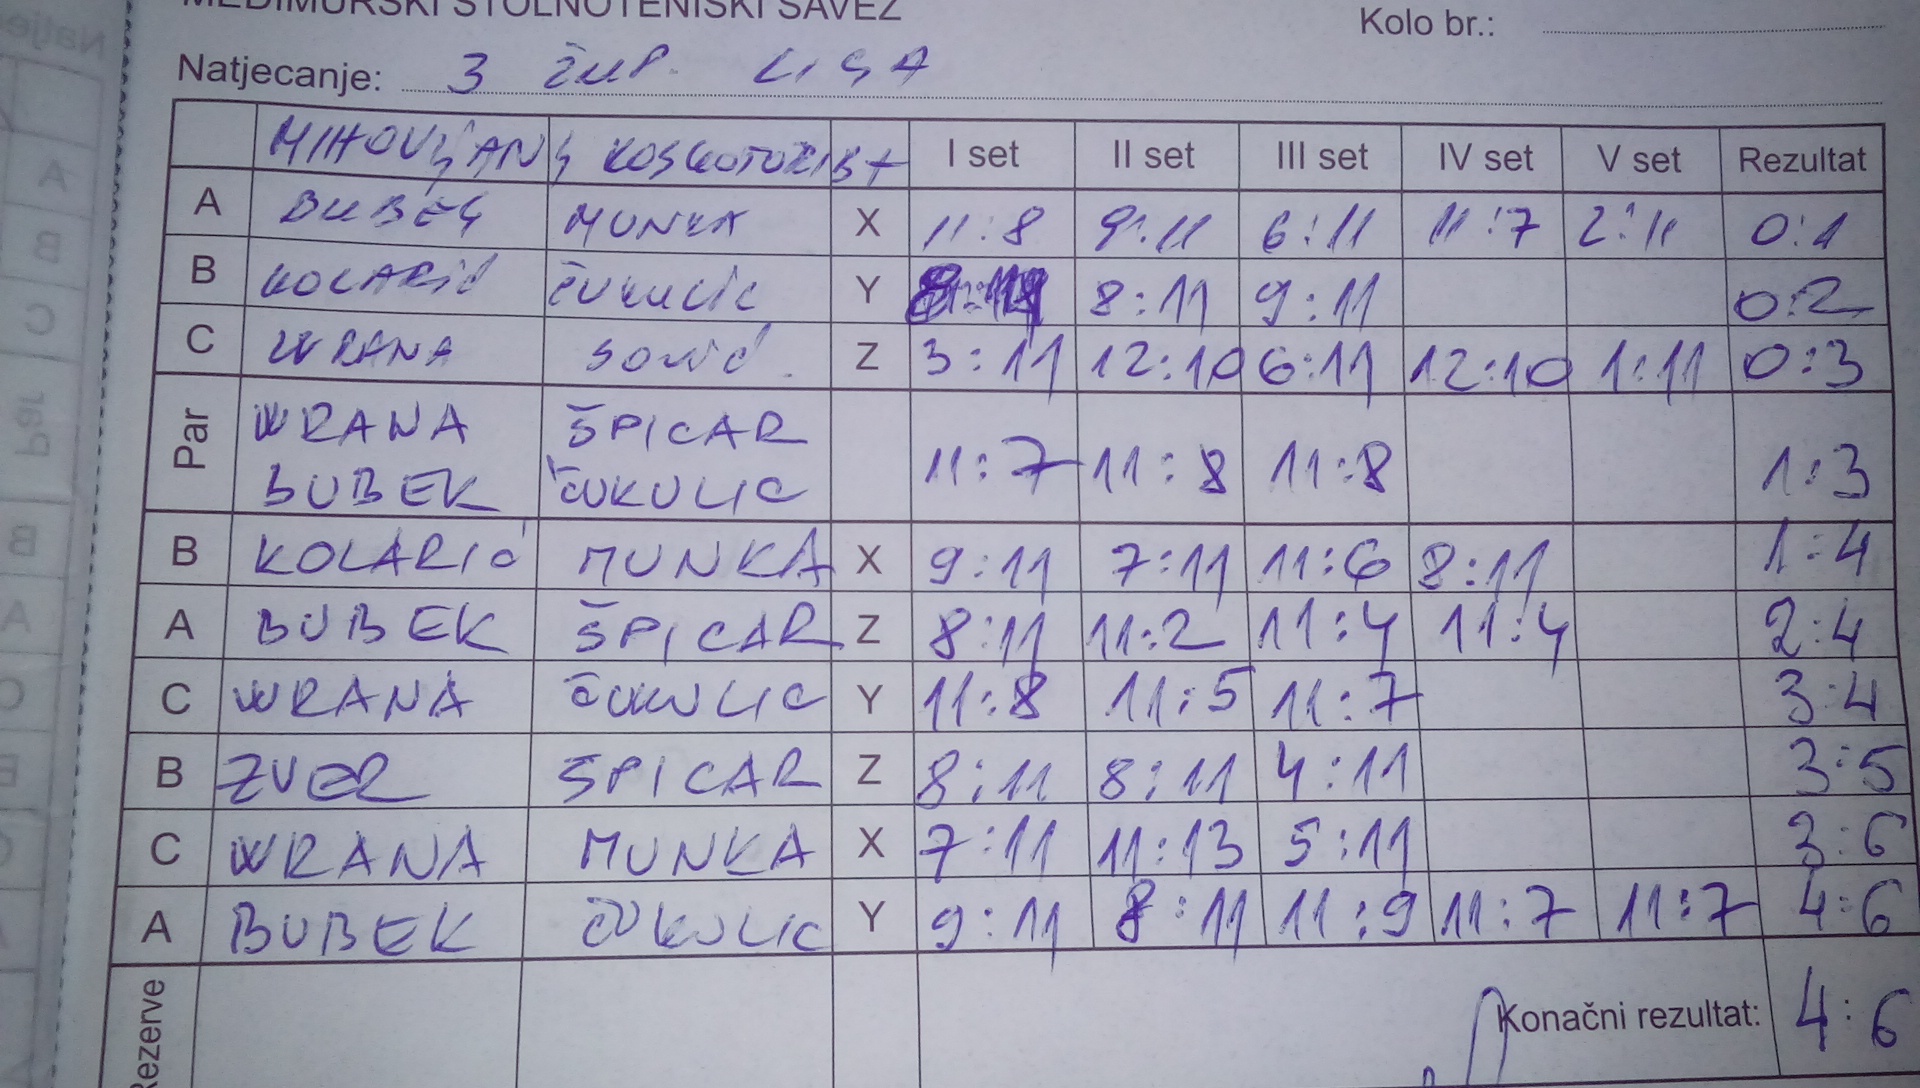 MEĐIMURSKI STOLNOTENISKI SAVEZ
Kolo br.:
Natjecanje: 3 ŽUP. LIGA
I set II set III set IV set V set Rezultat
A BUBEK MUNKA X 11:8 9:11 6:11 11:7 2:11 0:1
B KOLARIĆ ČUKULIC Y 8:11 9:11 0:2
C WRANA Z 3:11 12:10 6:11 12:10 1:11 0:3
Par WRANA ŠPICAR 11:7 11:8 11:8 1:3
BUBEK ČUKULIC
B KOLARIĆ MUNKA X 9:11 7:11 11:6 8:11 1:4
A BUBEK ŠPICAR Z 8:11 11:2 11:4 11:4 2:4
C WRANA ČUKULIC Y 11:8 11:5 11:7 3:4
B ZVER ŠPICAR Z 8:11 8:11 4:11 3:5
C WRANA MUNKA X 7:11 11:13 5:11 3:6
A BUBEK ČUKULIC Y 9:11 8:11 11:9 11:7 11:7 4:6
Rezerve
Konačni rezultat: 4:6